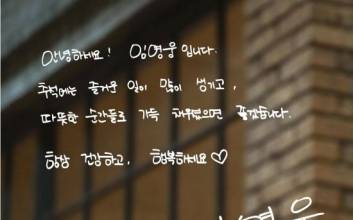 안녕하세요! 임영웅입니다.
추석에는 즐거운 일이 많이 생기고,
따뜻한 순간들로 가득 채워졌으면 좋겠습니다.
항상 건강하고, 행복하세요♡
영웅